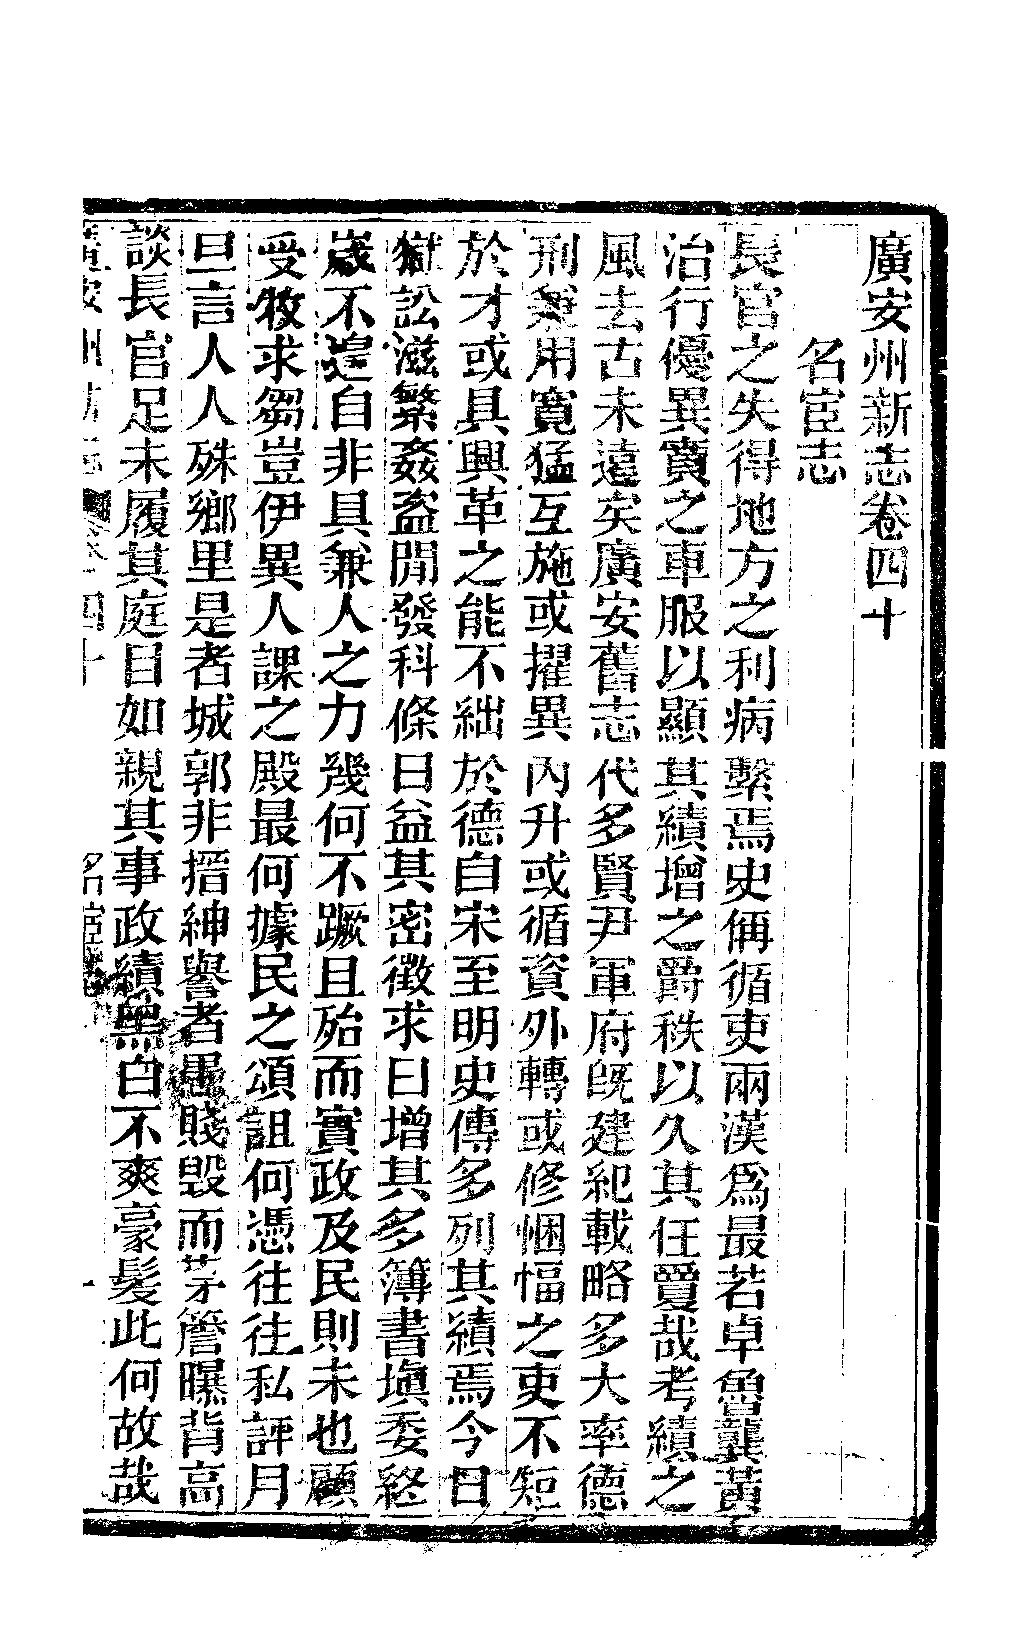 廣安州新志卷四十
名宦志
長官之失得地方之利病繫焉史偁循吏兩漢爲最若卓魯龔黃
治行優異寶之車服以顯其績增之爵秩以久其任舋哉考績之
風去古未遠矣廣安舊志代多賢尹軍府旣建紀載略多大率德
刑兼用寬猛互施或擢異內升或循資外轉或修悃愊之吏不短
於才或具興革之能不絀於德自宋至明史傳多列其績焉今日
獄訟滋繁姦盗閒發科條日益其密徵求日增其多簿書塡委終
歲不遑自非具兼人之力幾何不蹶且殆而實政及民則未也顧
受牧求芻豈伊異人課之殿最何據民之頌詛何憑往往私評月
旦言人人殊鄉里是者城郭非搢紳譽者愚賤毀而茅簷曝背高
談長官足未履其庭目如親其事政績黑白不爽豪髮此何故哉
廣安州新志 卷四十 名宦志 一